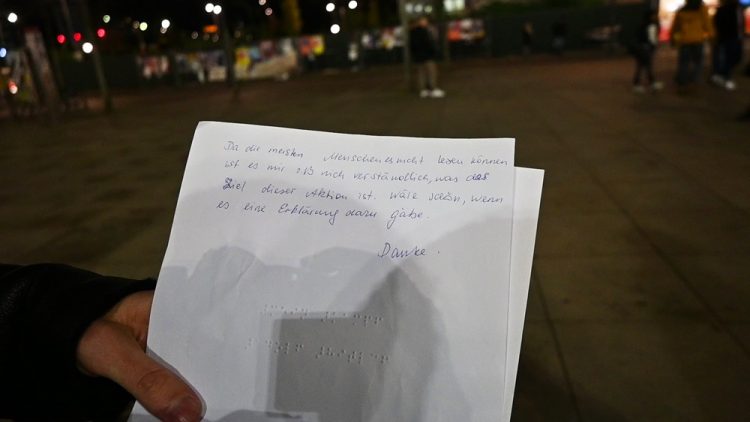 Da die meisten Menschen es nicht lesen können
ist es mir z.B. nich verständlich, was das
Ziel dieser Aktion ist. Wäre schön, wenn
es eine Erklärung dazu gäbe.
Danke.